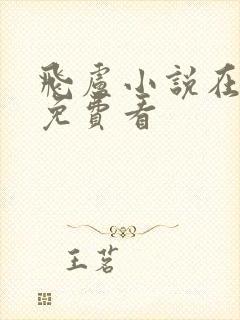 飛盧小說在
免費看
王茗